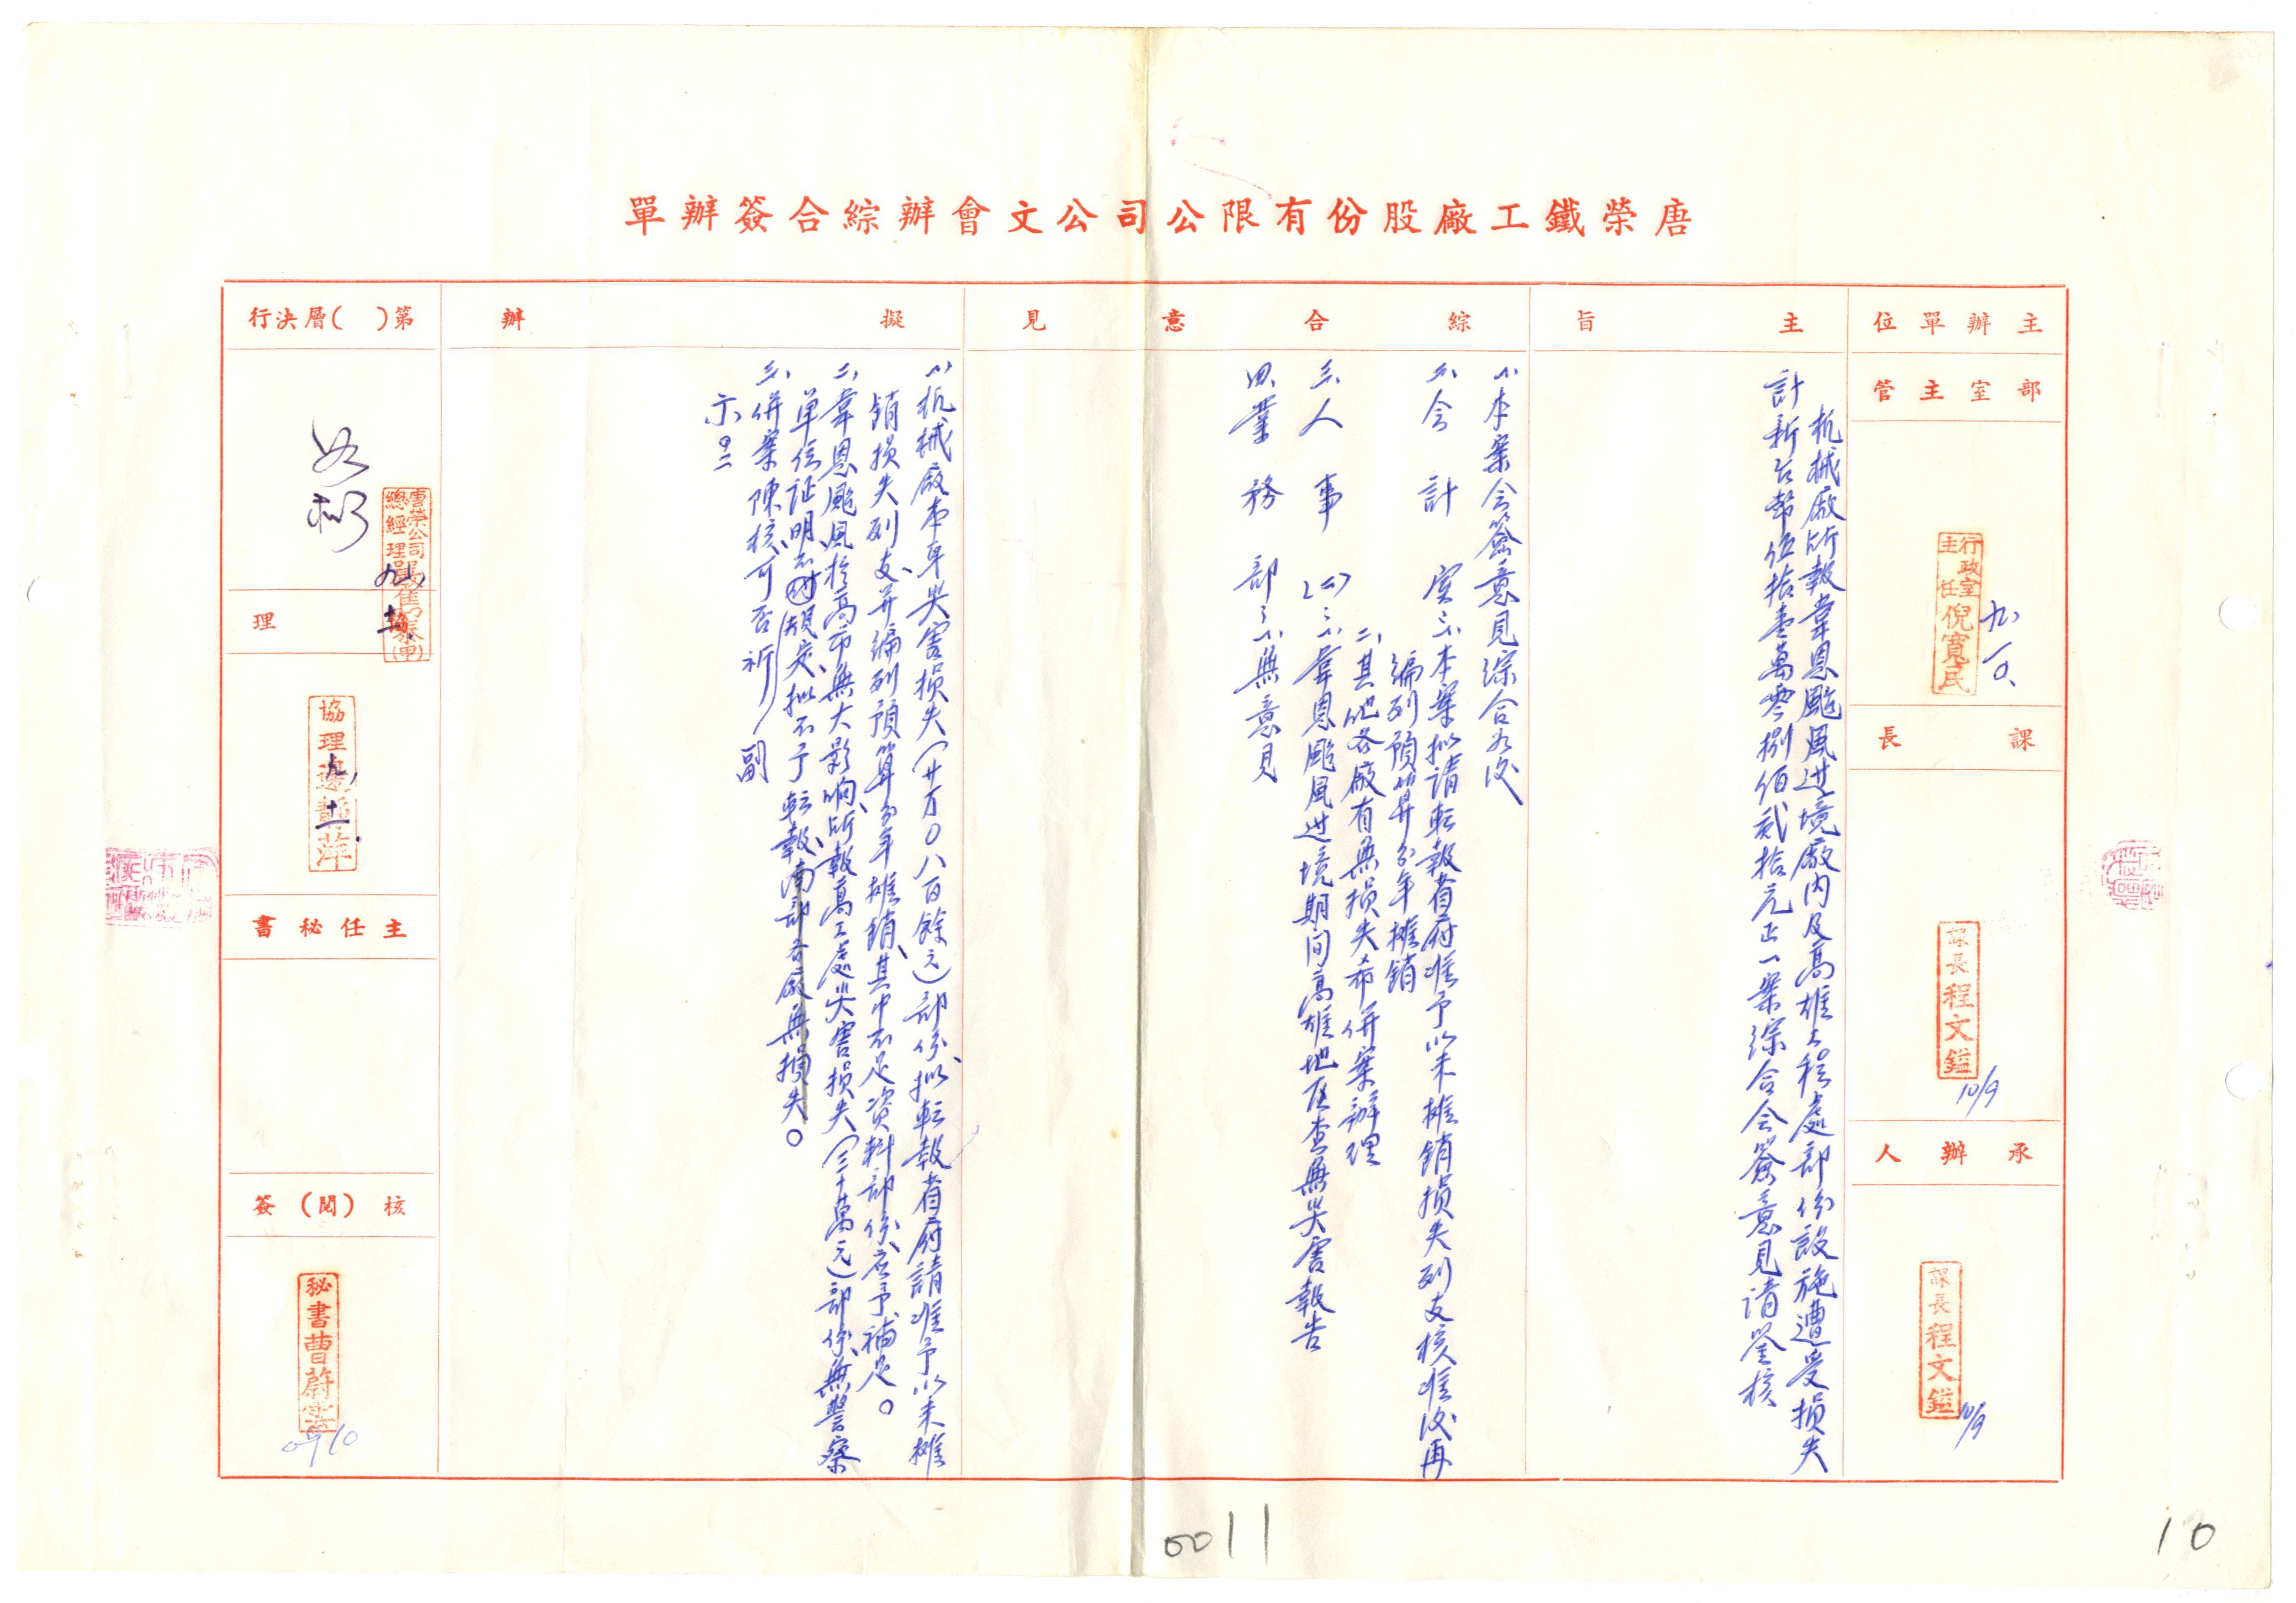 唐榮鐵工廠股份有限公司公文會辦綜合簽辦單
主辦單位
部室主管
行政室
主任倪寬民
九、一〇、
課長
課長程文鎰
10/9
承辦人
課長程文鎰
10/9
主旨
机械廠所報韋恩颱風过境廠内及高雄工程處部份設施遭受損失
計新台幣伍拾壹萬零捌佰貳拾元正一案綜合会簽意見请鑒核
綜合意見
一、本案会簽意見综合如次
二、会計室：1、本案拟请転報省府准予以未攤銷損失列支核准後再
编列預算分年攤銷
2、其他各廠有無損失希併案辦理
三、人事(二)：1、韋恩颱風过境期间高雄地区查無災害報告
四、業務部：1、無意見
擬辦
一、机械廠本身災害損失(廿万0八百餘元)部份、拟転報省府請准予以未攤
銷損失列支、并編列預算分年攤銷、其中不足資料部份、应予補足。
二、韋恩颱風於高市無大影响、所報高工處災害損失(三十萬元)部份、無警察
单位证明、不附規定、拟不予転報、南部各廠無損失。
三、併案陳核、可否祈
示
副
第(　)層決行
如擬
唐榮公司
總經理
九、
十一、
理
協理
九、
十一、
主任秘書
核(閱)簽
秘書曹蔚
0910
0011
10